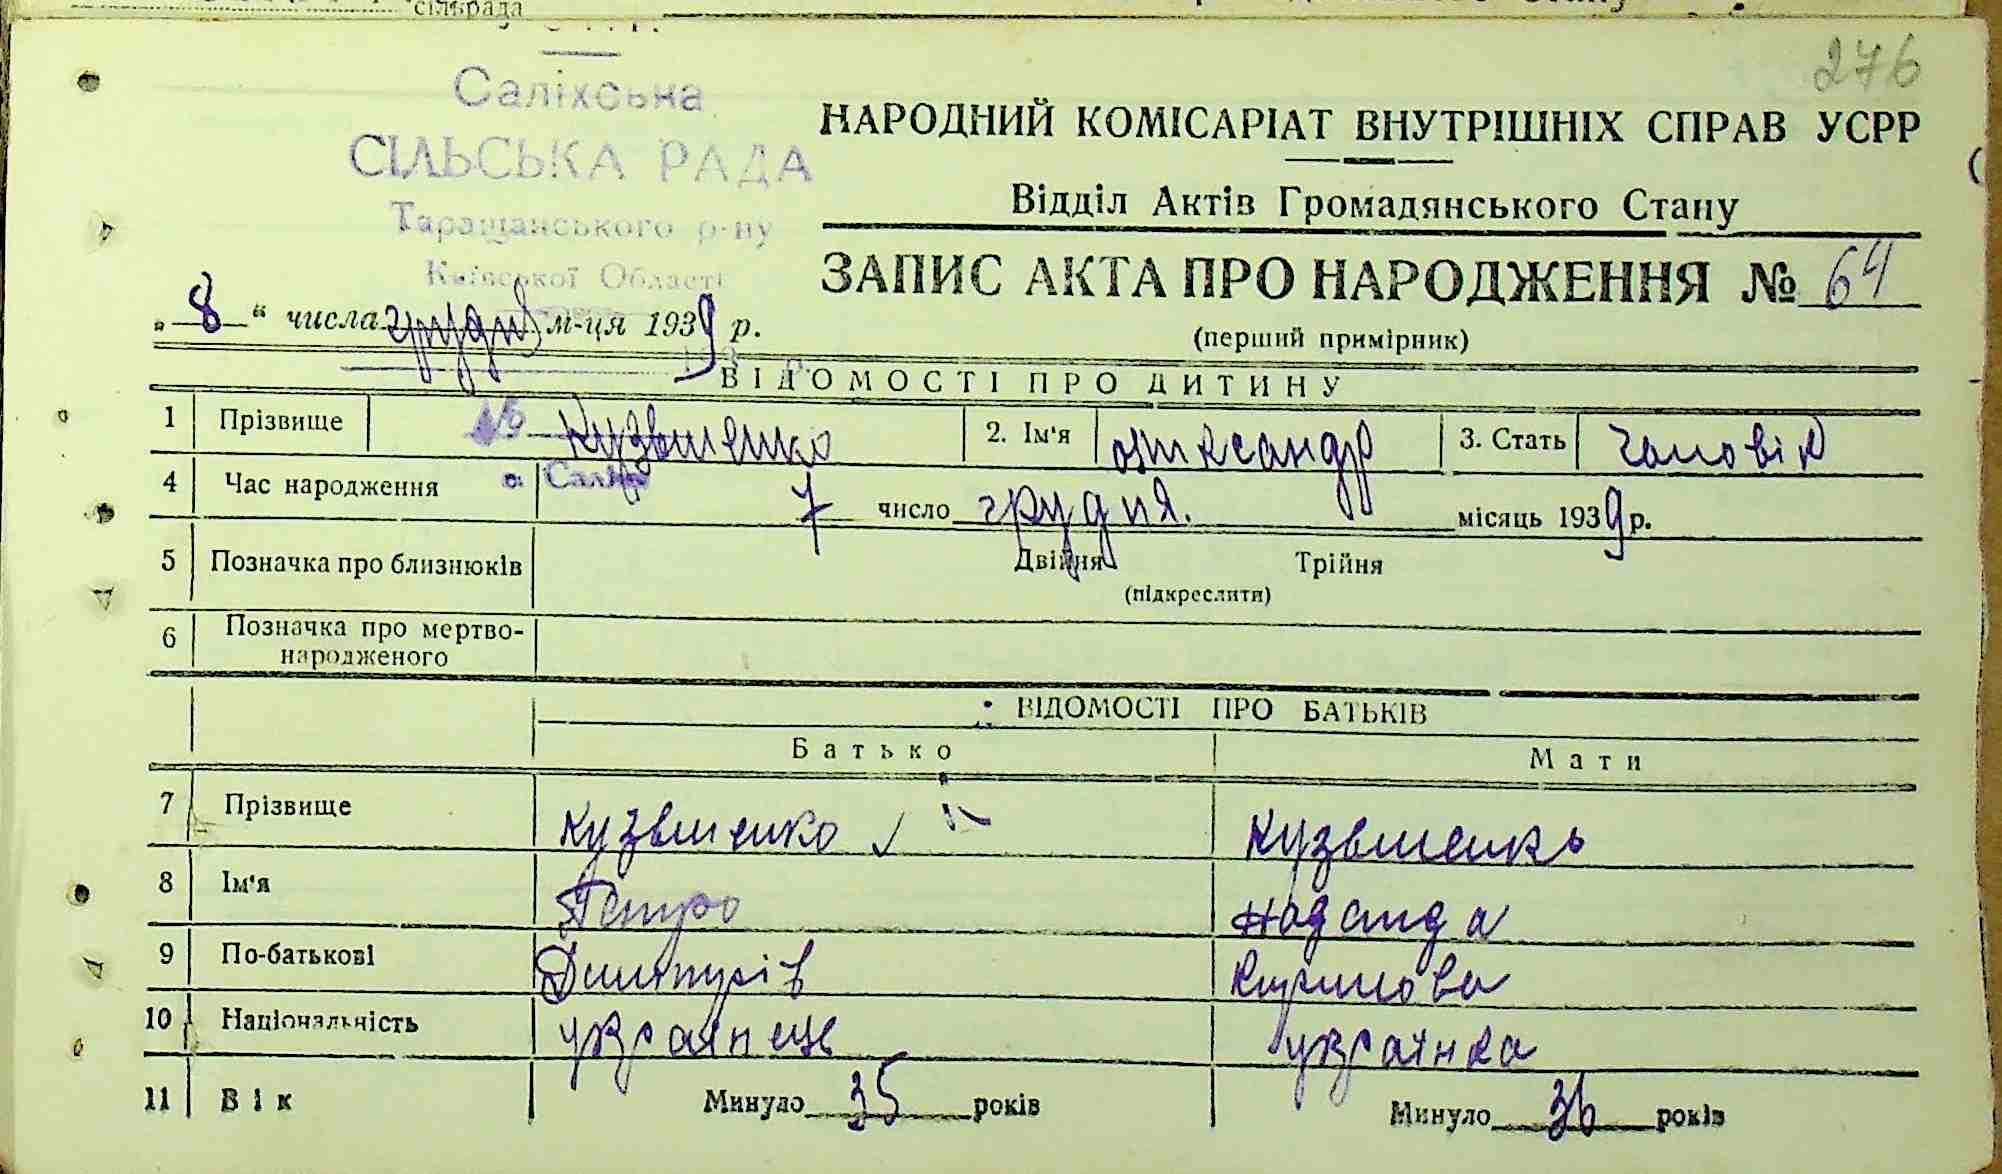 сільрада
276
Саліхська
СІЛЬСЬКА РАДА
Таращанського р-ну
Київської Області
НАРОДНИЙ КОМІСАРІАТ ВНУТРІШНІХ СПРАВ УСРР
Відділ Актів Громадянського Стану
ЗАПИС АКТА ПРО НАРОДЖЕННЯ № 64
(перший примірник)
„8“ числа грудня м-ця 1939 р.
ВІДОМОСТІ ПРО ДИТИНУ
1 Прізвище Кузьменко 2. Ім'я Олександр 3. Стать чоловік
4 Час народження 7 число грудня. місяць 1939 р.
5 Позначка про близнюків Двійня Трійня
(підкреслити)
6 Позначка про мертво-
народженого
ВІДОМОСТІ ПРО БАТЬКІВ
Батько Мати
7 Прізвище Кузьменко Кузьменко
8 Ім'я Петро Надежда
9 По-батькові Дмитрів Кирилова
10 Національність українець українка
11 Вік Минуло 35 років Минуло 36 років